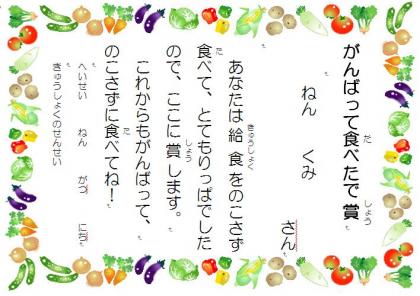 がんばって食べたで賞
ねん　くみ
さん
あなたは給食をのこさず
食べて、とてもりっぱでした
ので、ここに賞します。
これからもがんばって、
のこさずに食べてね！
へいせい　ねん　がつ　にち
きゅうしょくのせんせい